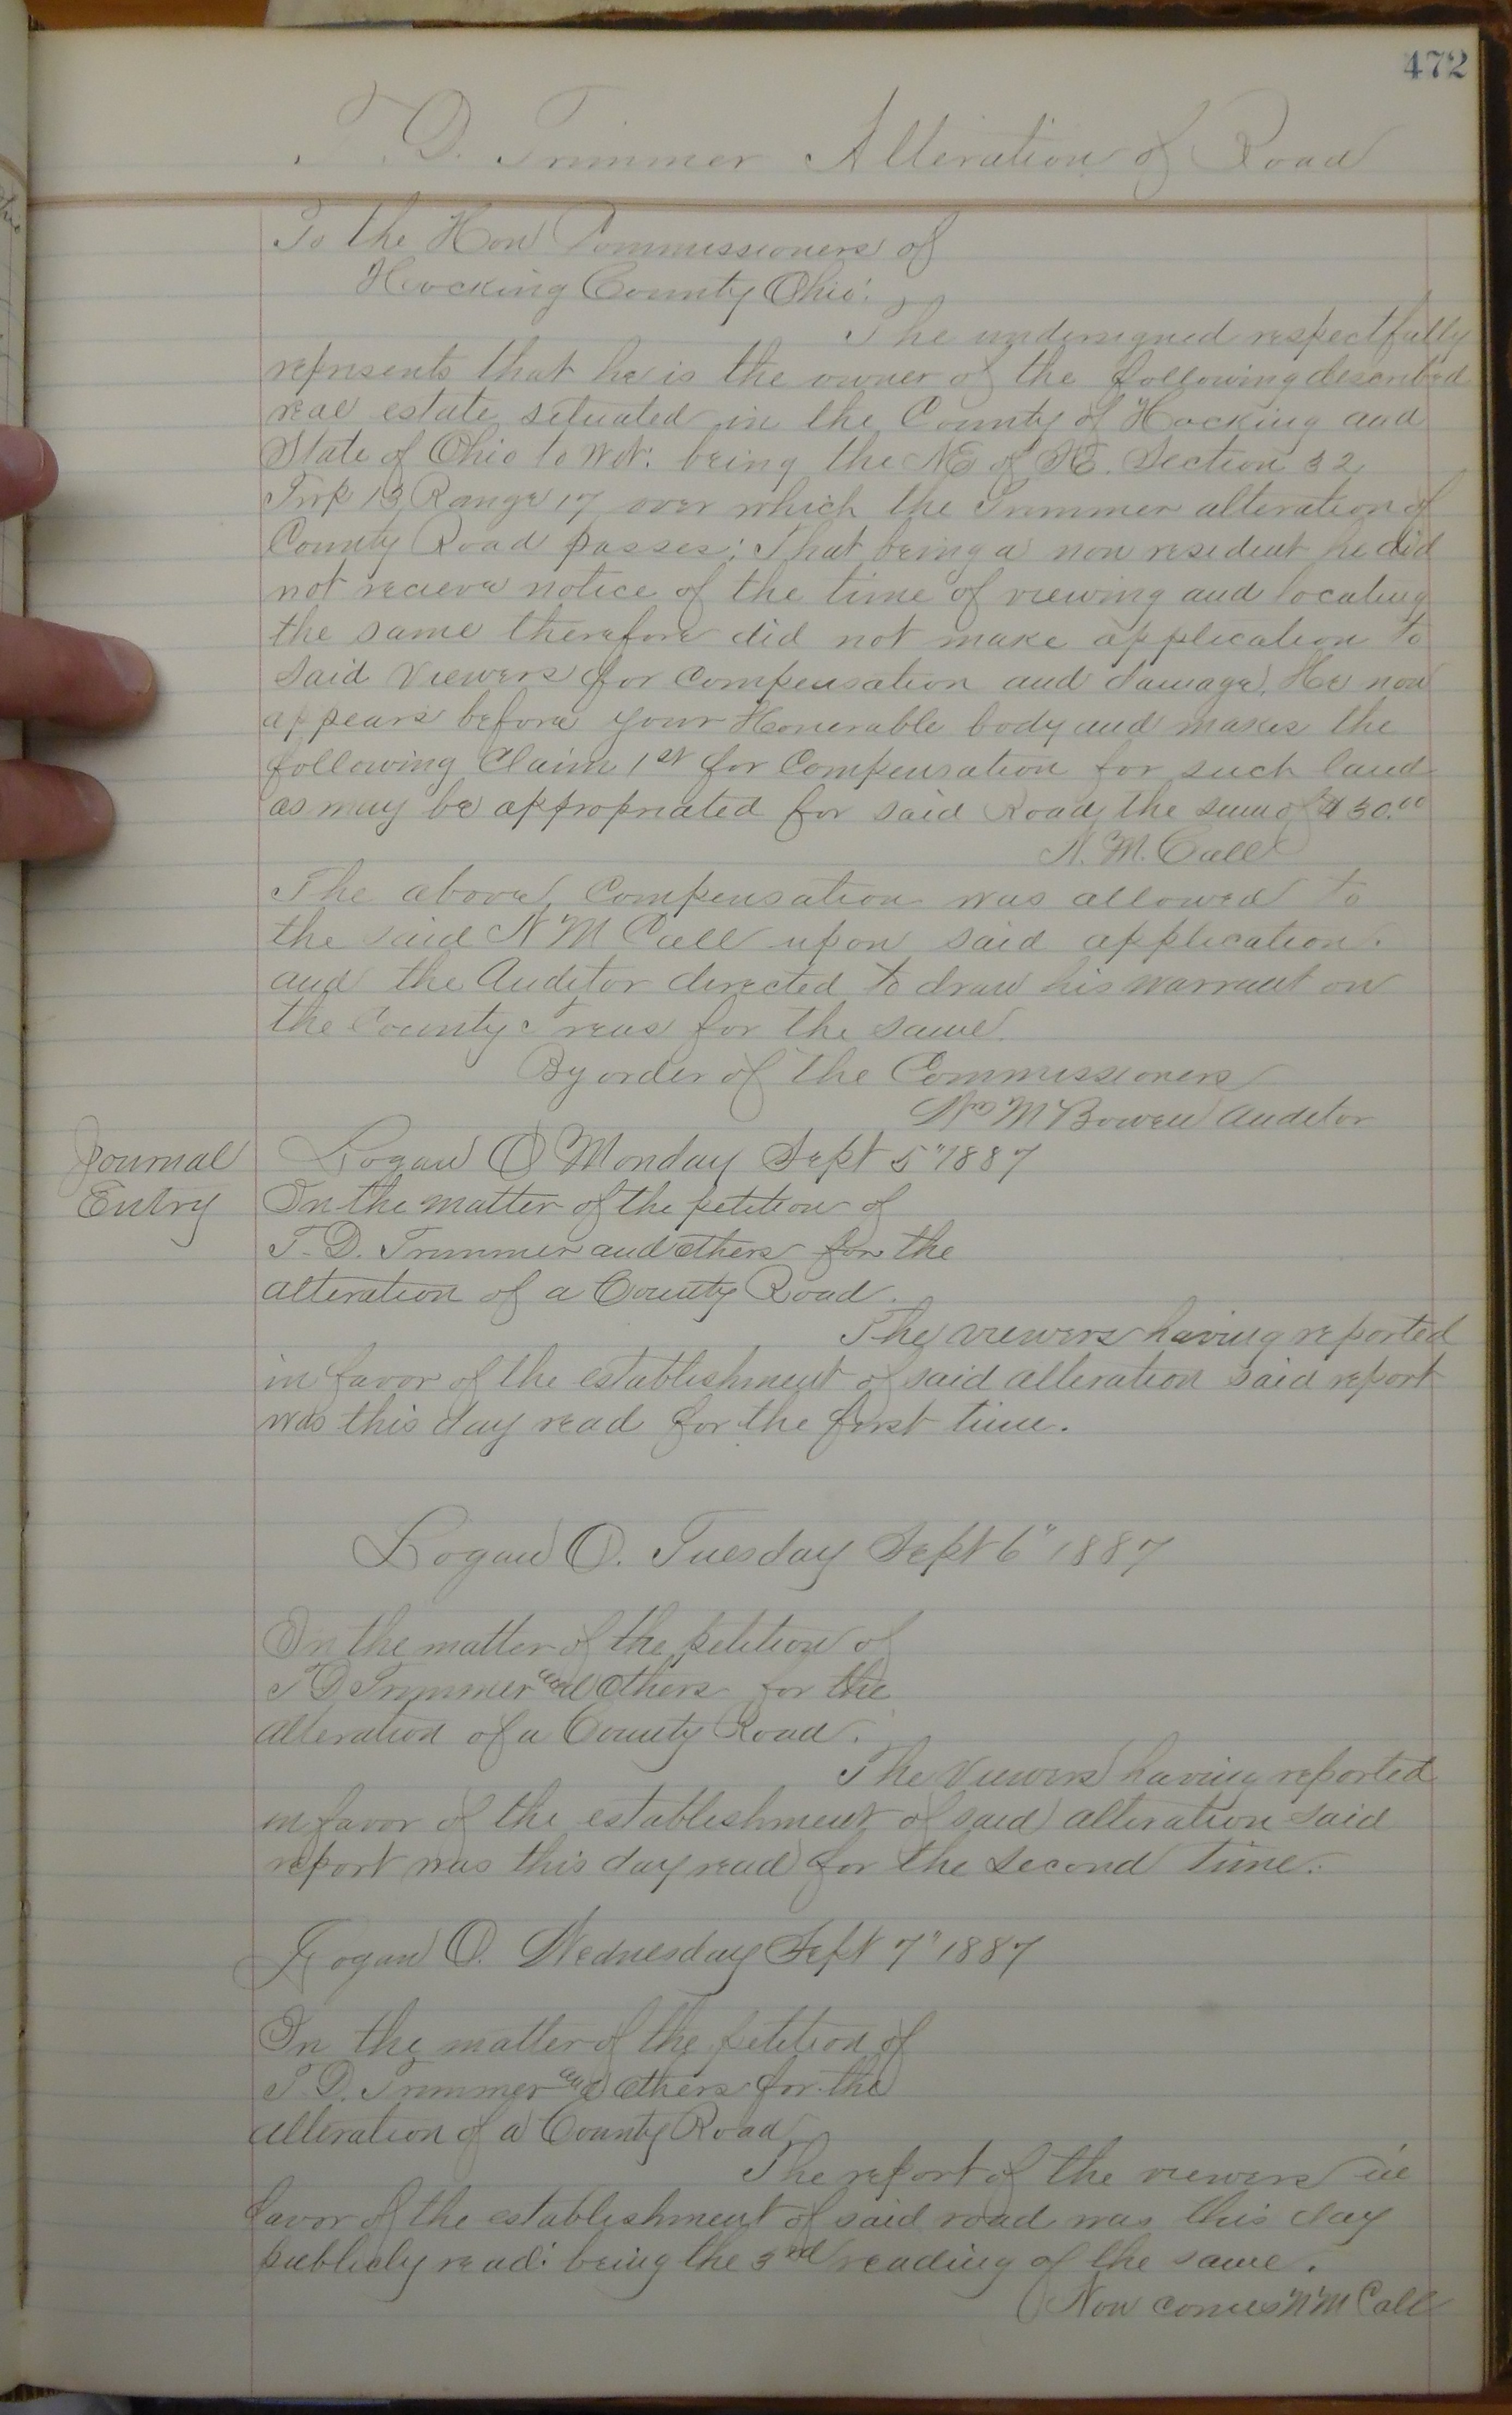 472
T. D. Trimmer Alteration of Road
To the Hon Commissioners of
Hocking County Ohio:
The undersigned respectfully
represents that he is the owner of the following described
real estate situated in the County of Hocking and
State of Ohio to wit: being the NE of Section 32
Twp 13 Range 17 over which the Trimmer alteration of
County Road passes; That being a non resident he did
not recieve notice of the time of viewing and locating
the same therefore did not make application to
said Viewers for compensation and damage. He now
appears before your Honerable body and makes the
following Claim 1st for Compensation for such land
as may be appropriated for said Road, the sum of $30.00
N. M. Call
The above Compensation was allowed to
the said N M Call upon said application.
and the Auditor directed to draw his warrant on
the County Treas for the same.
By order of the Commissioners
Wm M Bowen Auditor
Journal
Entry
Logan O Monday Sept 5" 1887
In the matter of the petition of
T. D. Trimmer and others for the
alteration of a County Road.
The viewers having reported
in favor of the establishment of said alteration said report
was this day read for the first time.
Logan O. Tuesday Sept 6" 1887
In the matter of the petition of
T D Trimmer and others for the
alteration of a County Road.
The Viewers having reported
in favor of the establishment of said alteration said
report was this day read for the second time.
Logan O. Wednesday Sept 7" 1887
In the matter of the petition of
T. D. Trimmer and others for the
alteration of a County Road
The report of the viewers in
favor of the establishment of said road was this day
publicly read: being the 3rd reading of the same.
Now comes N M Call